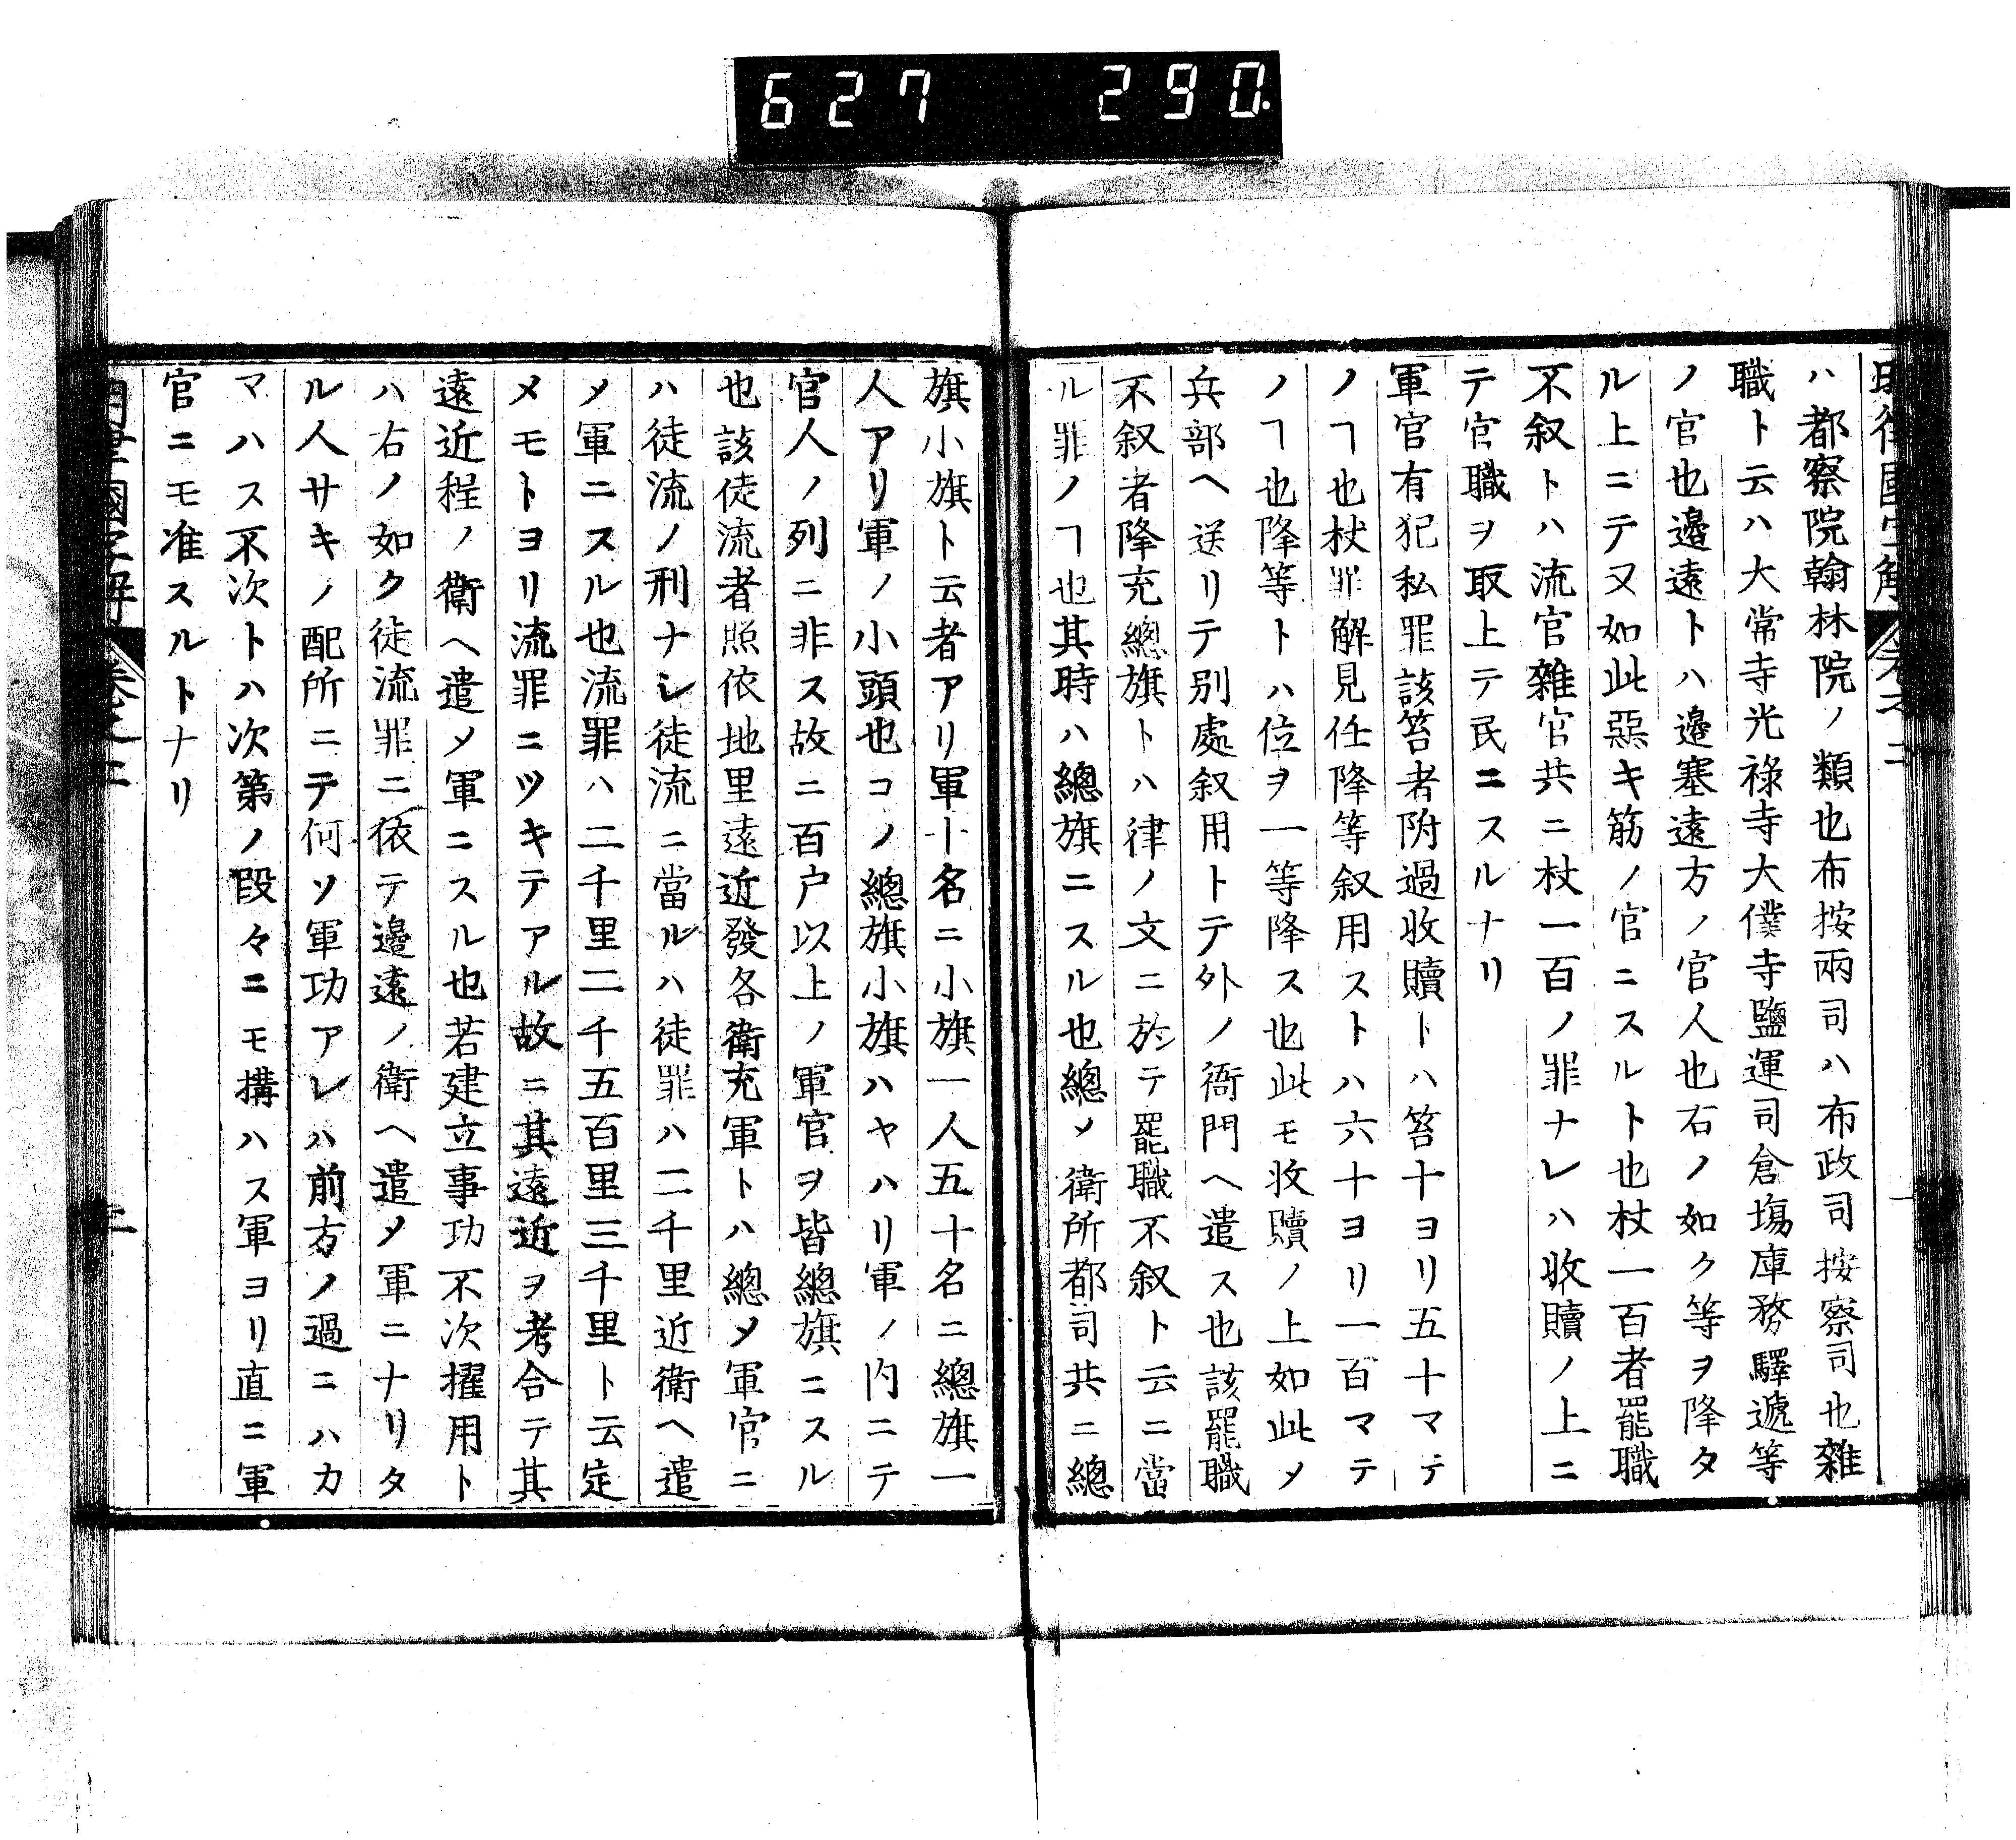 627 290
明律國字解 卷之二
ハ都察院翰林院ノ類也布按兩司ハ布政司按察司也雜
職ト云ハ大常寺光祿寺大僕寺鹽運司倉塲庫務驛遞等
ノ官也邉遠トハ邉塞遠方ノ官人也右ノ如ク等ヲ降タ
ル上ニテ又如此惡キ筋ノ官ニスルト也杖一百者罷職
不叙トハ流官雜官共ニ杖一百ノ罪ナレハ收贖ノ上ニ
テ官職ヲ取上テ民ニスルナリ
軍官有犯私罪該笞者附過收贖トハ笞十ヨリ五十マテ
ノヿ也杖罪解見任降等叙用ストハ六十ヨリ一百マテ
ノヿ也降等トハ位ヲ一等降ス也此モ收贖ノ上如此メ
兵部ヘ送リテ別處叙用トテ外ノ衙門ヘ遣ス也該罷職
不叙者降充總旗トハ律ノ文ニ於テ罷職不叙ト云ニ當
ル罪ノヿ也其時ハ總旗ニスル也總メ衛所都司共ニ總
旗小旗ト云者アリ軍十名ニ小旗一人五十名ニ總旗一
人アリ軍ノ小頭也コノ總旗小旗ハヤハリ軍ノ内ニテ
官人ノ列ニ非ス故ニ百户以上ノ軍官ヲ皆總旗ニスル
也該徒流者照依地里遠近發各衛充軍トハ總メ軍官ニ
ハ徒流ノ刑ナシ徒流ニ當ルハ徒罪ハ二千里近衛ヘ遣
メ軍ニスル也流罪ハ二千里二千五百里三千里ト云定
メモトヨリ流罪ニツキテアル故ニ其遠近ヲ考合テ其
遠近程ノ衛ヘ遣メ軍ニスル也若建立事功不次擢用ト
ハ右ノ如ク徒流罪ニ依テ邉遠ノ衛ヘ遣メ軍ニナリタ
ル人サキノ配所ニテ何ソ軍功アレハ前方ノ過ニハカ
マハス不次トハ次第ノ段々ニモ搆ハス軍ヨリ直ニ軍
官ニモ准スルトナリ
明律國字解 卷之二